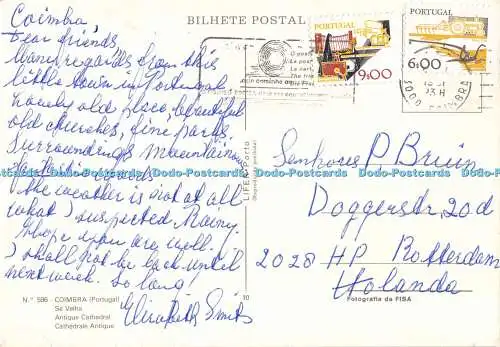 Coimbra
BILHETE POSTAL
Dear friends,
Many regards from this
little town in Portugal
lovely old place, beautiful
old churches, fine parks.
Surroundings mountainous
the weather is not at all
what I suspected. Rainy.
I hope you are well.
I shall not be back until
next week. So long
Elizabeth Smits
Nº 586 COIMBRA (Portugal)
Sé Velha
Antique Cathedral
Cathédrale Antique
10
LIFER - Porto
PORTUGAL
9$00
PORTUGAL
6$00
3000 COIMBRA
13 H
Senhores P Bruin
Doggerstr. 20d
2028 HP Rotterdam
Holanda
Fotografia da FISA
Dodo-Postcards Dodo-Postcards Dodo-Postcards Dodo-Postcards